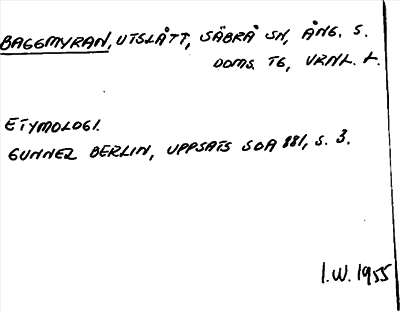 BAGGMYRAN, UTSLÅTT, SÄBRÅ SN, ÅNG. S.
DOMS. TG, VRNL. L.
ETYMOLOGI.
GUNNEL BERLIN, UPPSATS SOA 881, S. 3.
I.W. 1955